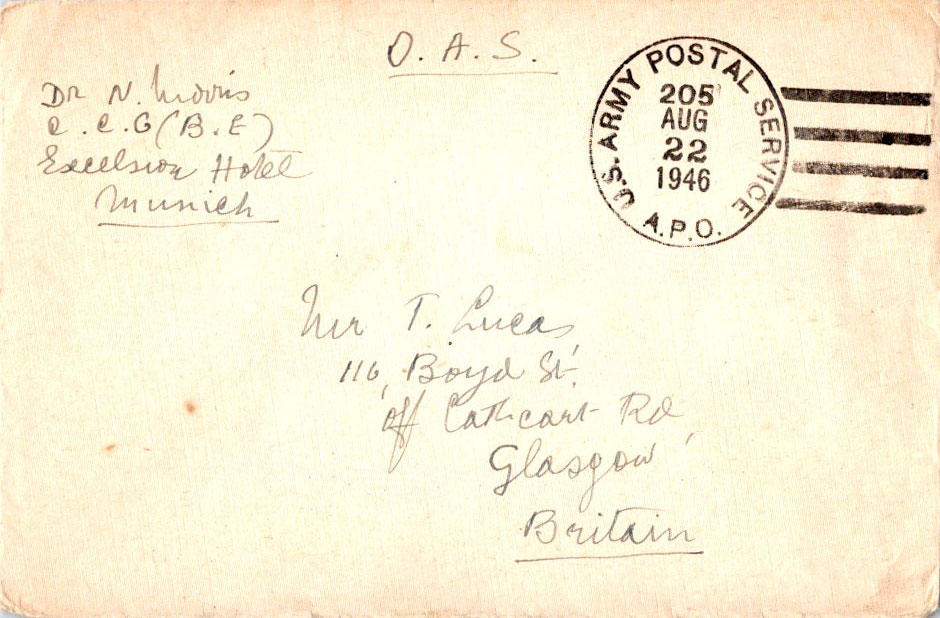 O. A. S.
Dr N. Morris
C. C. G (B. E)
Excelsior Hotel
Munich
U.S. ARMY POSTAL SERVICE
205
AUG
22
1946
A.P.O.
Mr T. Lucas,
116, Boyd St.
off Cathcart Rd,
Glasgow
Britain